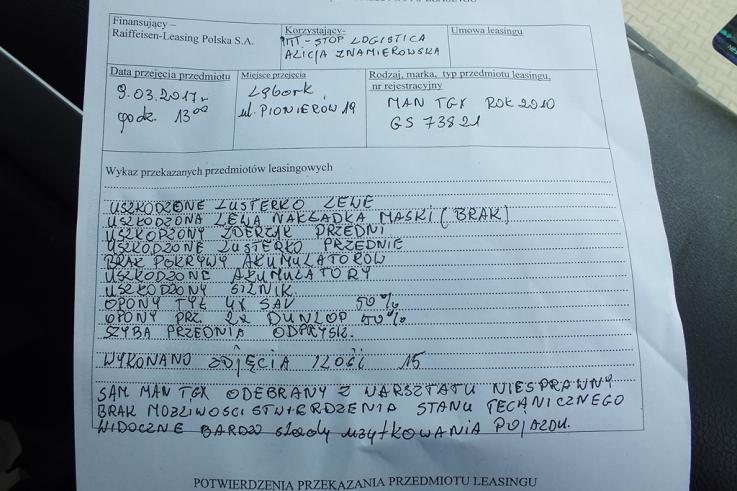 Finansujący –
Raiffeisen-Leasing Polska S.A.
Korzystający-
STOP LOGISTICA
ALICJA ZNAMIEROWSKA
Umowa leasingu
Data przejęcia przedmiotu
9.03.2017r
godz. 13⁰⁰
Miejsce przejęcia
Lębork,
ul. PIONIERÓW 19
Rodzaj, marka, typ przedmiotu leasingu,
nr rejestracyjny
MAN TGX ROK 2010
GS 73821
Wykaz przekazanych przedmiotów leasingowych
USZKODZONE LUSTERKO LEWE
USZKODZONA LEWA NAKŁADKA MASKI (BRAK)
USZKODZONY ZDERZAK PRZEDNI
USZKODZONE LUSTERKO PRZEDNIE
BRAK POKRYWY AKUMULATORÓW
USZKODZONE AKUMULATORY
USZKODZONY SILNIK
OPONY TYŁ 4X SAV 50%
OPONY PRZ. 2X DUNLOP 40%
SZYBA PRZEDNIA ODPRYSK.
WYKONANO ZDJĘCIA ILOŚCI 15
SAM MAN TGX ODEBRANY Z WARSZTATU NIESPRAWNY
BRAK MOŻLIWOŚCI STWIERDZENIA STANU TECHNICZNEGO
WIDOCZNE BARDZO ślady użytKOWANIA POJAZDU.
POTWIERDZENIA PRZEKAZANIA PRZEDMIOTU LEASINGU